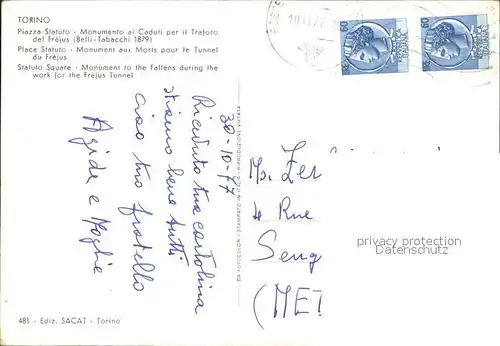 TORINO
Piazza Statuto - Monumento ai Caduti per il Traforo
del Fréjus (Belli-Tabacchi 1879)
Place Statuto - Monument aux Morts pour le Tunnel
du Fréjus
Statuto Square - Monument to the Fallens during the
work for the Fréjus Tunnel
60
60
30-10-77
Ricevuto tua cartolina
stiamo bene tutti
ciao tuo fratello
Agide e Moglie
DA FOTOCOLOR - STAMPATO IN ITALIA - RIPRODUZIONE VIETATA
Zer
Rue
Seng
(MET
privacy protection
Datenschutz
481 - Ediz. SACAT - Torino